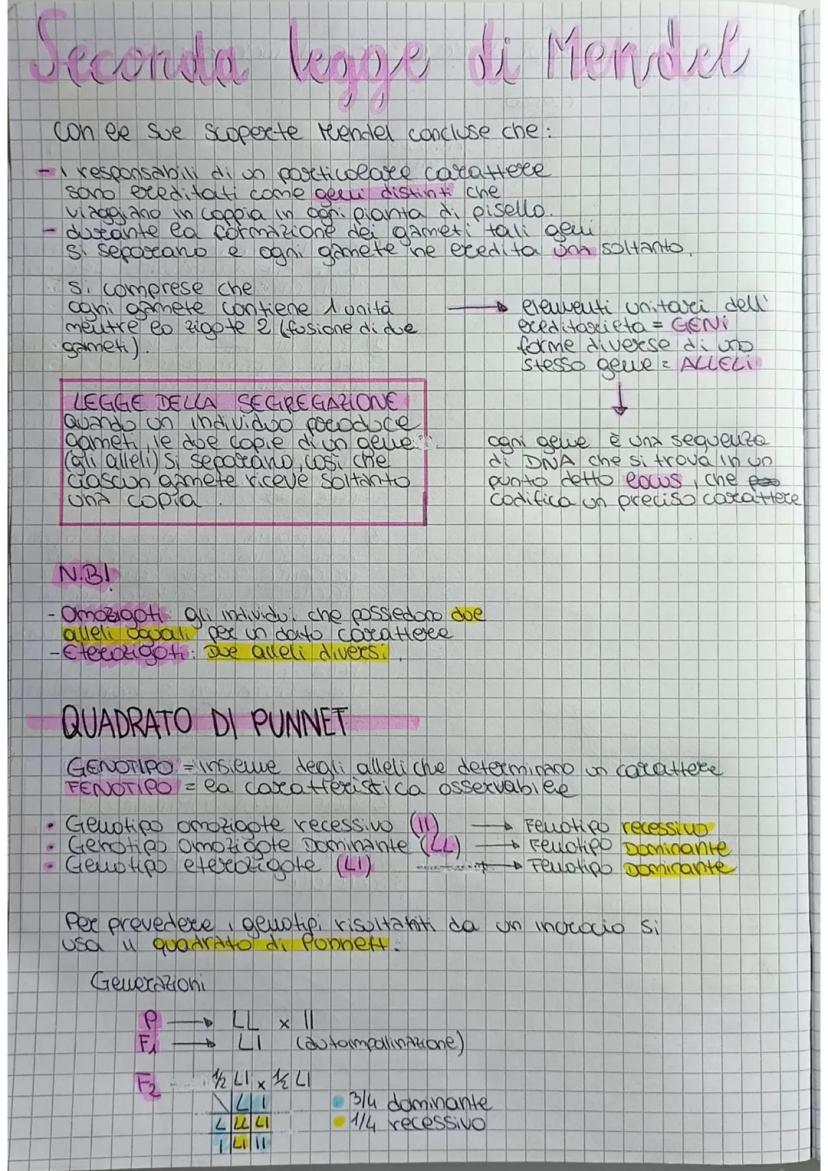 Seconda legge di Mendel
Con le sue scoperte Mendel concluse che:
- i responsabili di un particolare carattere
sono ereditati come geni distinti che
viaggiano in coppia in ogni pianta di pisello.
- durante la formazione dei gameti tali geni
si separano e ogni gamete ne eredita una soltanto.
Si comprese che
ogni gamete contiene 1 unità
mentre lo zigote 2 (fusione di due
gameti).
→ elementi unitari dell'
ereditarieta = GENi
forme diverse di uno
stesso gene = ALLELi
↓
ogni gene è una sequenza
di DNA che si trova in un
punto detto locus, che
codifica un preciso carattere
LEGGE DELLA SEGREGAZIONE
quando un individuo produce
gameti, le due copie di un gene
(gli alleli) si separano, così che
ciascun gamete riceve soltanto
una copia
N.B!
- Omozigoti: gli individui che possiedono due
alleli uguali per un dato carattere
- Eterozigoti: Due alleli diversi.
QUADRATO DI PUNNET
GENOTIPO = insieme degli alleli che determinano un carattere
FENOTIPO = la caratteristica osservabile
• Genotipo omozigote recessivo (ll) → Fenotipo recessivo
• Genotipo omozigote Dominante (LL) → Fenotipo Dominante
• Genotipo eterozigote (Ll) → Fenotipo Dominante
Per prevedere i genotipi risultanti da un incrocio si
usa il quadrato di Punnett.
Generazioni
P → LL x ll
F1 → Ll (autoimpollinazione)
F2 1/2 Ll x 1/2 Ll
L l
L LL Ll
l Ll ll
3/4 dominante
1/4 recessivo